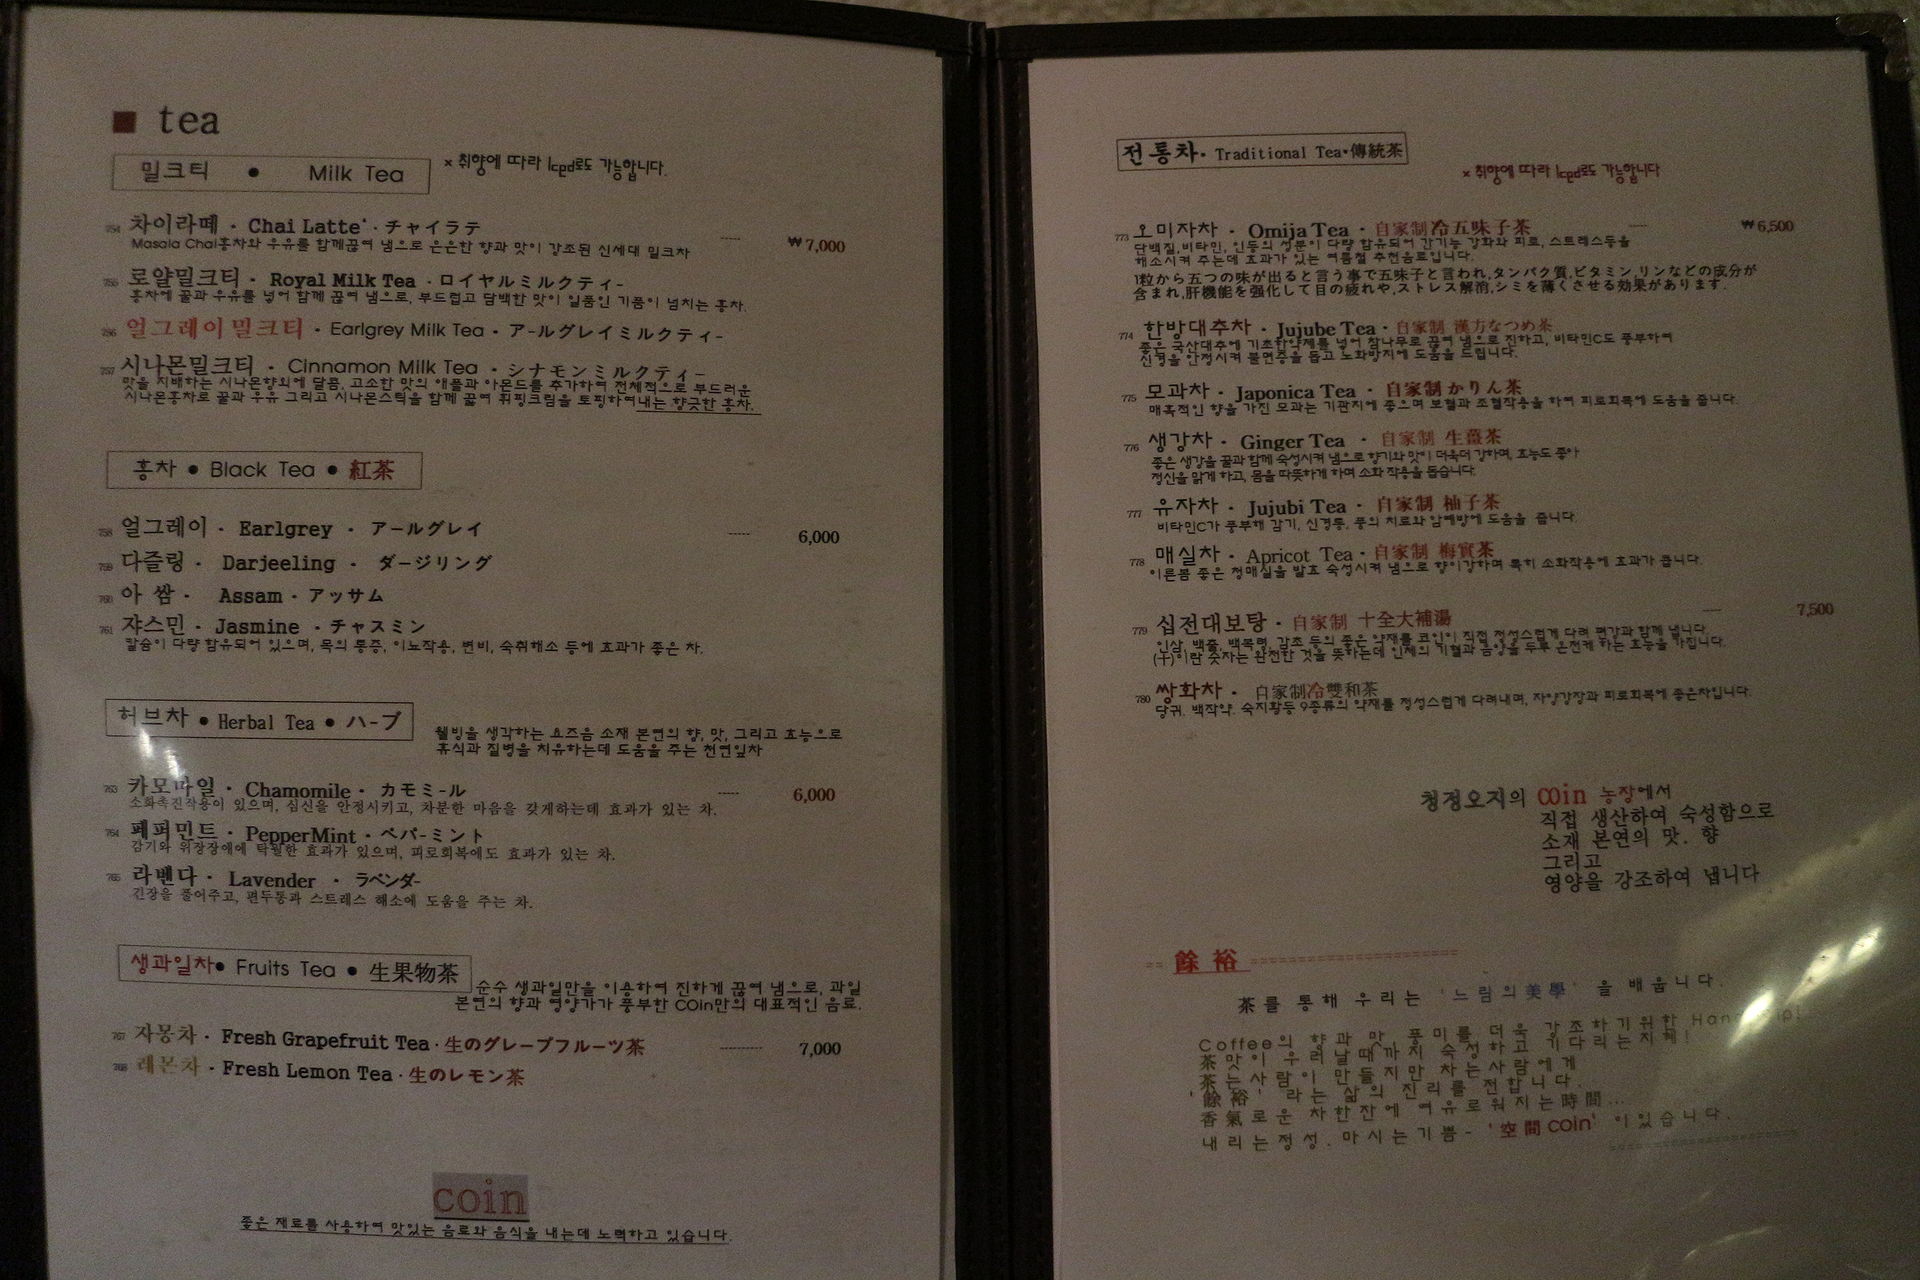 ■ tea
밀크티 • Milk Tea
× 취향에 따라 Iced로도 가능합니다.
754 차이라떼 · Chai Latte' · チャイラテ ---- ₩7,000
Masala Chai홍차와 우유를 함께끓여 냄으로 은은한 향과 맛이 강조된 신세대 밀크차
755 로얄밀크티 · Royal Milk Tea · ロイヤルミルクティ-
홍차에 꿀과 우유를 넣어 함께 끓여 냄으로, 부드럽고 담백한 맛이 일품인 기품이 넘치는 홍차.
756 얼그레이밀크티 · Earlgrey Milk Tea · アールグレイミルクティ-
757 시나몬밀크티 · Cinnamon Milk Tea · シナモンミルクティ-
맛을 지배하는 시나몬향외에 달콤, 고소한 맛의 애플과 아몬드를 추가하여 전체적으로 부드러운
시나몬홍차로 꿀과 우유 그리고 시나몬스틱을 함께 끓여 휘핑크림을 토핑하여내는 향긋한 홍차.
홍차 • Black Tea • 紅茶
758 얼그레이 · Earlgrey · アールグレイ ---- 6,000
759 다즐링 · Darjeeling · ダージリング
760 아 쌈 · Assam · アッサム
761 쟈스민 · Jasmine · チャスミン
칼슘이 다량 함유되어 있으며, 목의 통증, 이뇨작용, 변비, 숙취해소 등에 효과가 좋은 차.
허브차 • Herbal Tea • ハ-ブ
웰빙을 생각하는 요즈음 소재 본연의 향, 맛, 그리고 효능으로
휴식과 질병을 치유하는데 도움을 주는 천연잎차
763 카모마일 · Chamomile · カモミ-ル ---- 6,000
소화촉진작용이 있으며, 심신을 안정시키고, 차분한 마음을 갖게하는데 효과가 있는 차.
764 페퍼민트 · PepperMint · ペパ-ミント
감기와 위장장애에 탁월한 효과가 있으며, 피로회복에도 효과가 있는 차.
765 라벤다 · Lavender · ラベンダ-
긴장을 풀어주고, 편두통과 스트레스 해소에 도움을 주는 차.
생과일차• Fruits Tea • 生果物茶
순수 생과일만을 이용하여 진하게 끓여 냄으로, 과일
본연의 향과 영양가가 풍부한 COin만의 대표적인 음료.
767 자몽차 · Fresh Grapefruit Tea · 生のグレープフルーツ茶 --------- 7,000
768 레몬차 · Fresh Lemon Tea · 生のレモン茶
coin
좋은 재료를 사용하여 맛있는 음료와 음식을 내는데 노력하고 있습니다.
전통차· Traditional Tea·傳統茶
× 취향에 따라 Iced로도 가능합니다
773 오미자차 · Omija Tea · 自家制冷五味子茶 ---- ₩6,500
단백질,비타민, 인등의 성분이 다량 함유되어 간기능 강화와 피로, 스트레스등을
해소시켜 주는데 효과가 있는 여름철 추천음료입니다.
1粒から五つの味が出ると言う事で五味子と言われ,タンパク質,ビタミン,リンなどの成分が
含まれ,肝機能を強化して目の疲れや,ストレス解消,シミを薄くさせる効果があります.
774 한방대추차 · Jujube Tea · 自家制 漢方なつめ茶
좋은 국산대추에 기초한약재를 넣어 참나무로 끓여 냄으로 진하고, 비타민C도 풍부하여
신경을 안정시켜 불면증을 돕고 노화방지에 도움을 드립니다.
775 모과차 · Japonica Tea · 自家制 かりん茶
매혹적인 향을 가진 모과는 기관지에 좋으며 보혈과 조혈작용을 하여 피로회복에 도움을 줍니다.
776 생강차 · Ginger Tea · 自家制 生薑茶
좋은 생강을 꿀과 함께 숙성시켜 냄으로 향기와 맛이 더욱더 강하며, 효능도 좋아
정신을 맑게 하고, 몸을 따뜻하게 하며 소화 작용을 돕습니다.
777 유자차 · Jujubi Tea · 自家制 柚子茶
비타민C가 풍부해 감기, 신경통, 풍의 치료와 암예방에 도움을 줍니다.
778 매실차 · Apricot Tea · 自家制 梅實茶
이른봄 좋은 청매실을 발효 숙성시켜 냄으로 향이강하며 특히 소화작용에 효과가 큽니다.
779 십전대보탕 · 自家制 十全大補湯 ---- 7,500
인삼, 백출, 백복령, 감초 등의 좋은 약재를 코인이 직접 정성스럽게 다려 편강과 함께 냅니다
(十)이란 숫자는 완전한 것을 뜻하는데 인체의 기혈과 음양을 두루 온전케 하는 효능을 가집니다.
780 쌍화차 · 自家制冷雙和茶
당귀. 백작약. 숙지황등 9종류의 약재를 정성스럽게 다려내며, 자양강장과 피로회복에 좋은차입니다.
청정오지의 coin 농장에서
직접 생산하여 숙성함으로
소재 본연의 맛. 향
그리고
영양을 강조하여 냅니다
餘裕
茶를 통해 우리는 '느림의美學' 을 배웁니다.
Coffee의 향과 맛 풍미를 더욱 강조하기위한 Hand
茶맛이 우러날때까지 숙성하고 기다리는지혜!
茶는사람이 만들지만 차는사람에게
'餘裕' 라는 삶의 진리를 전합니다.
香氣로운 차한잔에 여유로워지는時間...
내리는정성.마시는기쁨- '空間coin' 이있습니다.